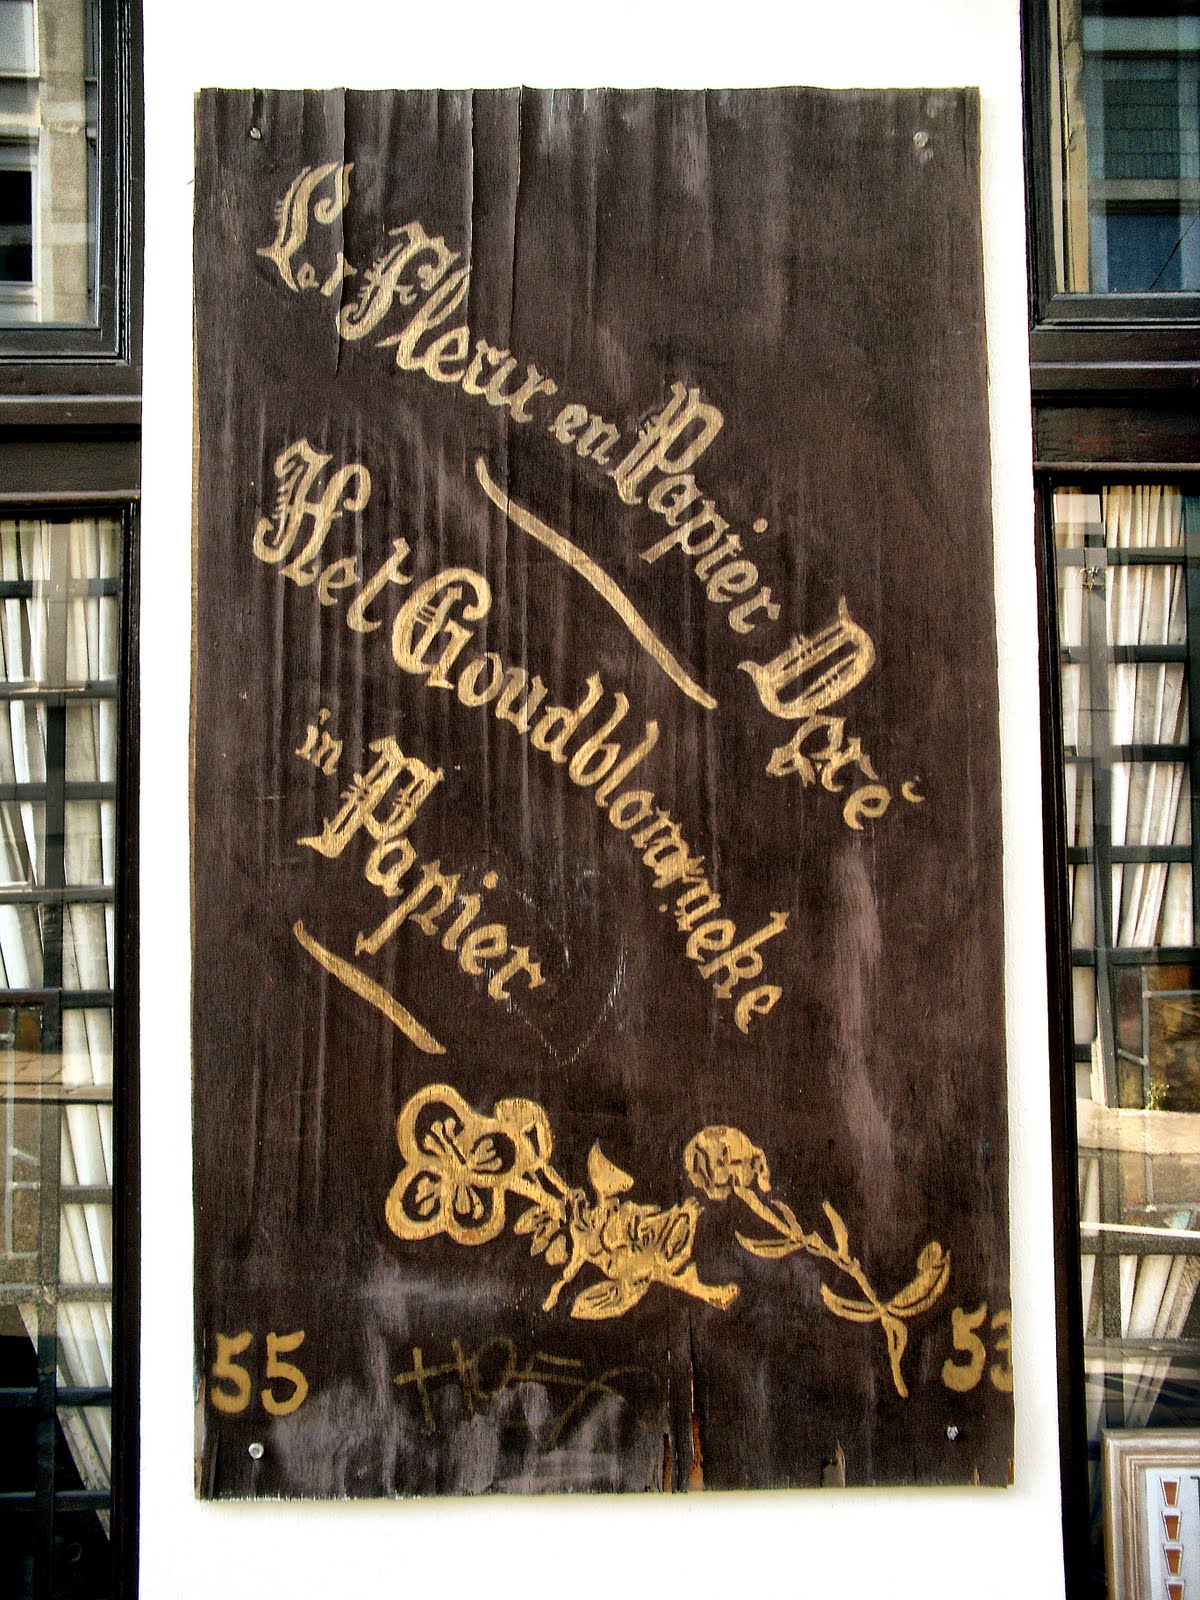 La Fleur en Papier Doré
Het Goudblommeke
in Papier
55 53